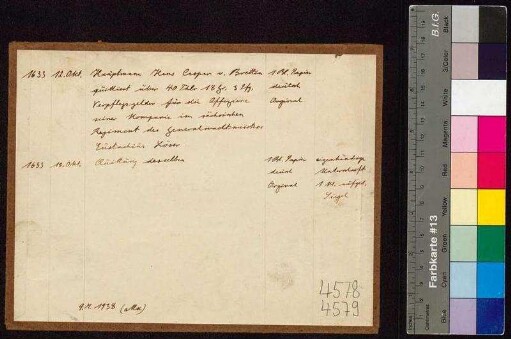 1633 12. Okt. Hauptmann Hans Caspar v. Bretten 1 Bl. Papier
quittiert über 40 Tlr 18 Gr. 3 Pfg. deutsch
Verpflegsgelder für die Offiziere Original
seiner Kompanie im sächsischen
Regiment des Generalwachtmeisters
Eustachius Löser
1633 12. Okt. Quittung desselben 1 Bl. Papier eigenhändige
deutsch Unterschrift
Original 1 aufgedr.
Siegel
9.11.1938
4578
4579
B.I.G.
Farbkarte #13
Black
3/Color
White
Magenta
Red
Yellow
Green
Cyan
Blue